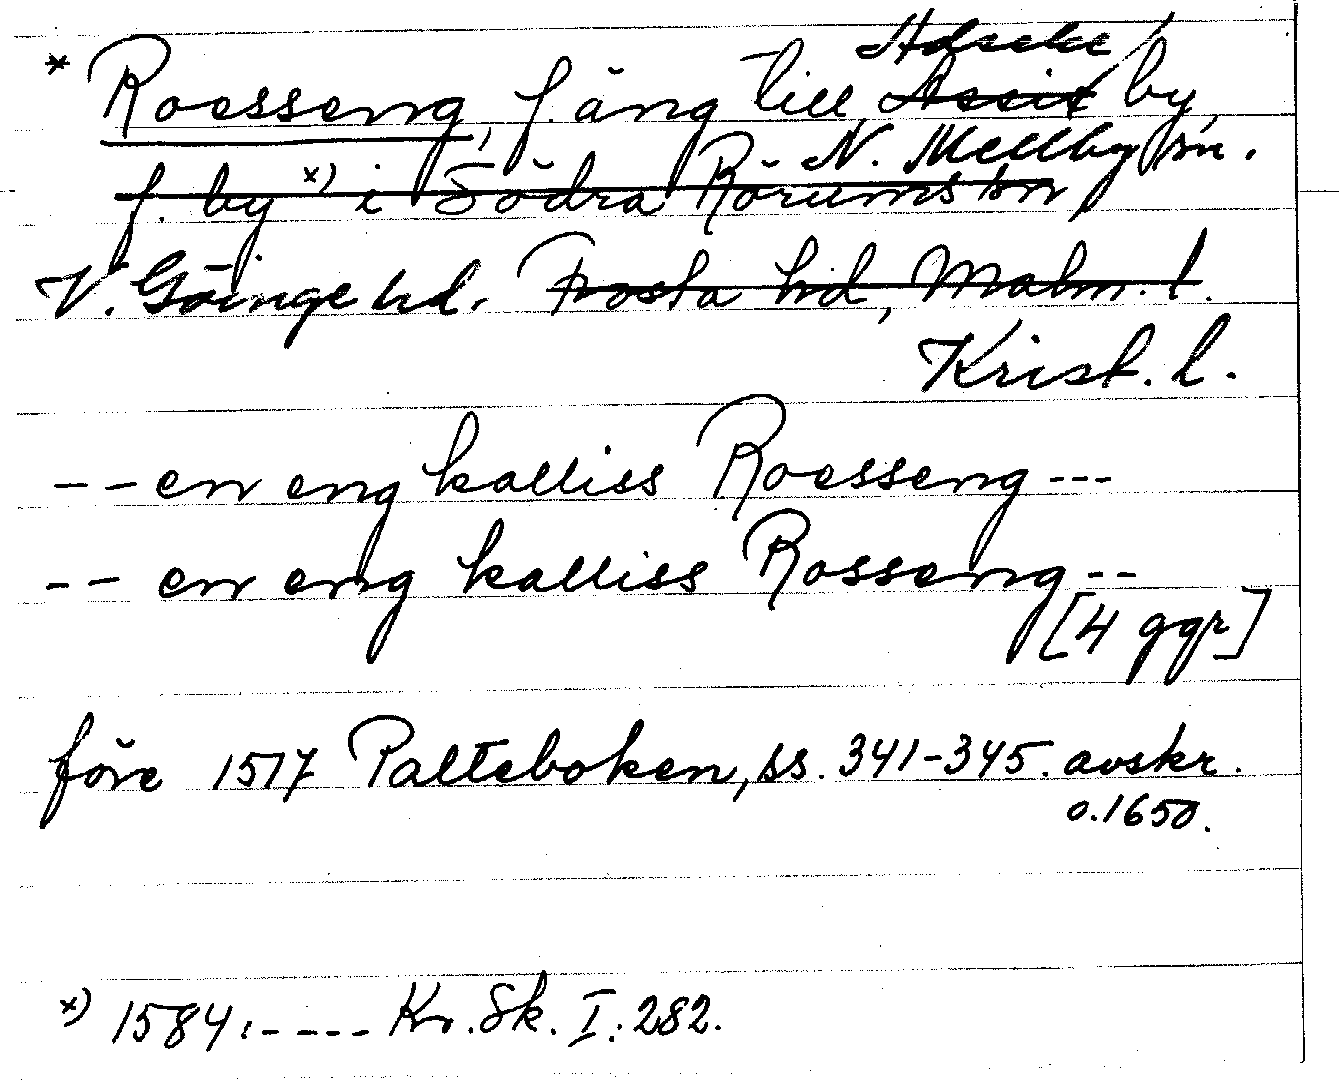 * Roesseng, f. äng till Adseke by,
N. Mellby sn.
f. by x) i Södra Rörums sn
V. Göinge hd. Frosta hd, Malm. l.
Krist. l.
-- en eng kalliss Roesseng ---
-- en eng kalliss Rosseng --
[4 ggr]
före 1517 Palteboken, ss. 341-345. avskr.
o. 1650.
x) 1584: ---- Kr. Sk. I. 282.